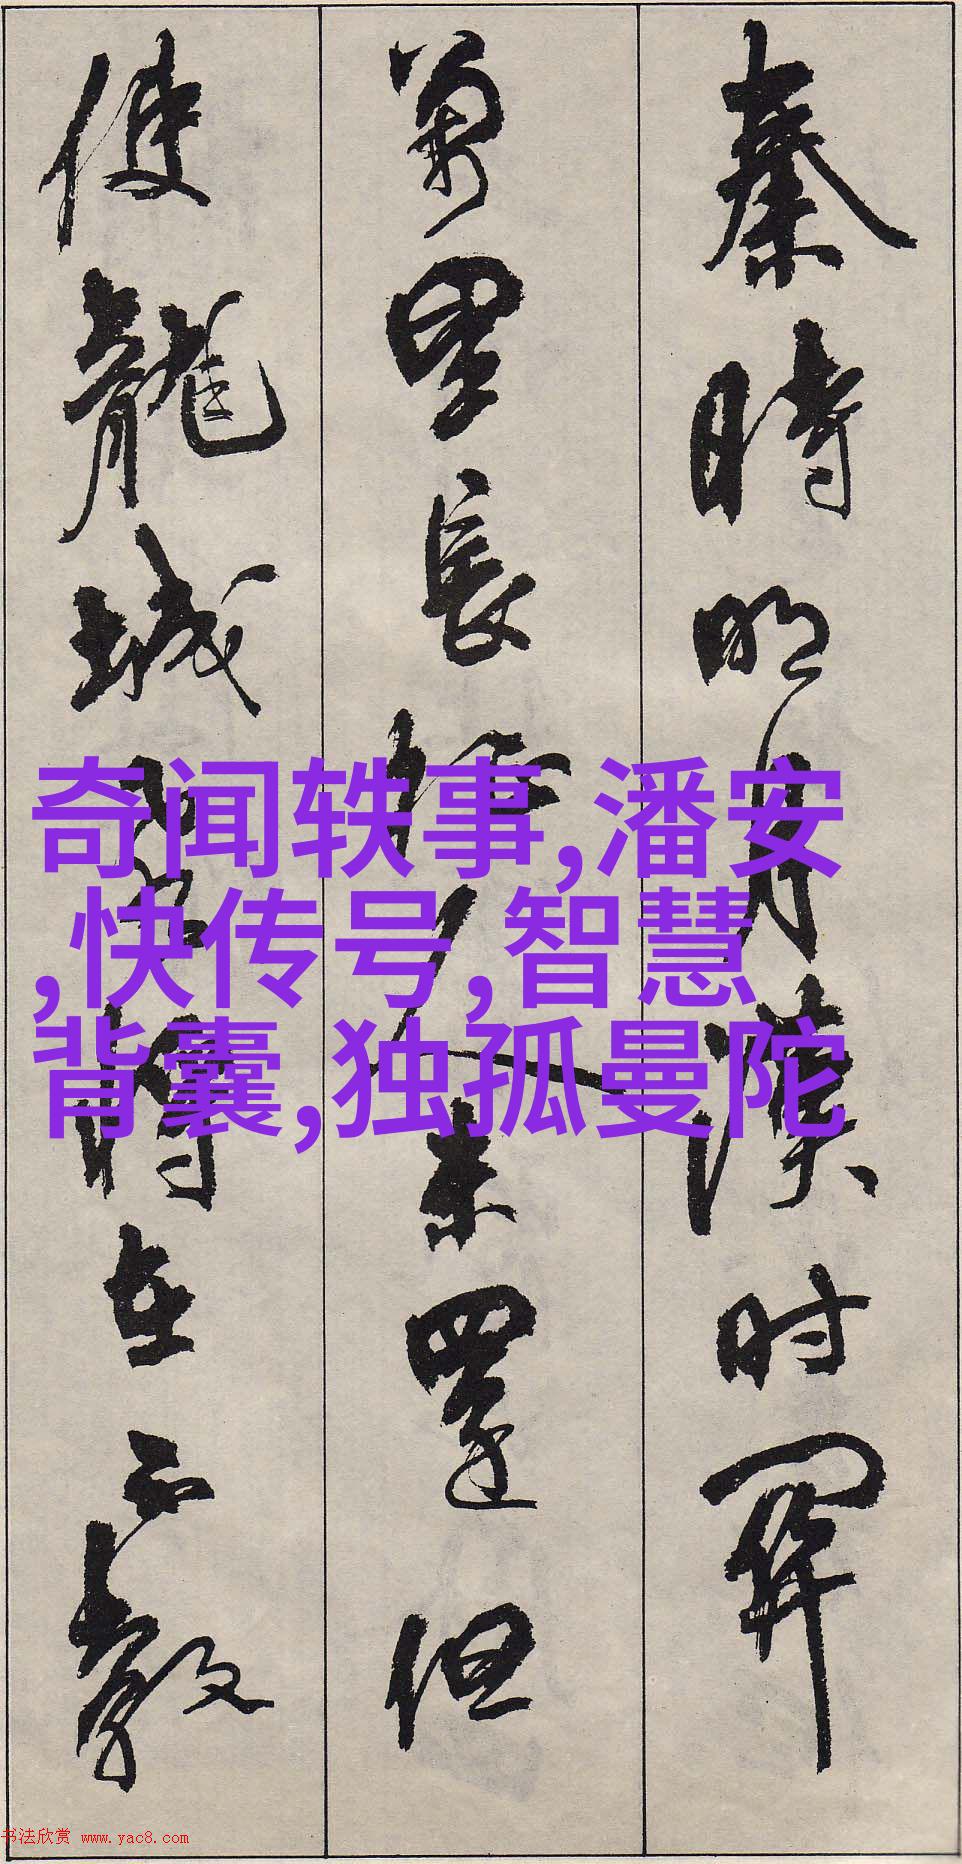 秦時明月漢时關
萬里長征人未還但
使龍城將在不教
奇闻轶事,潘安
,快传号,智慧
背囊,独孤曼陀
书法欣赏 www.yac8.com